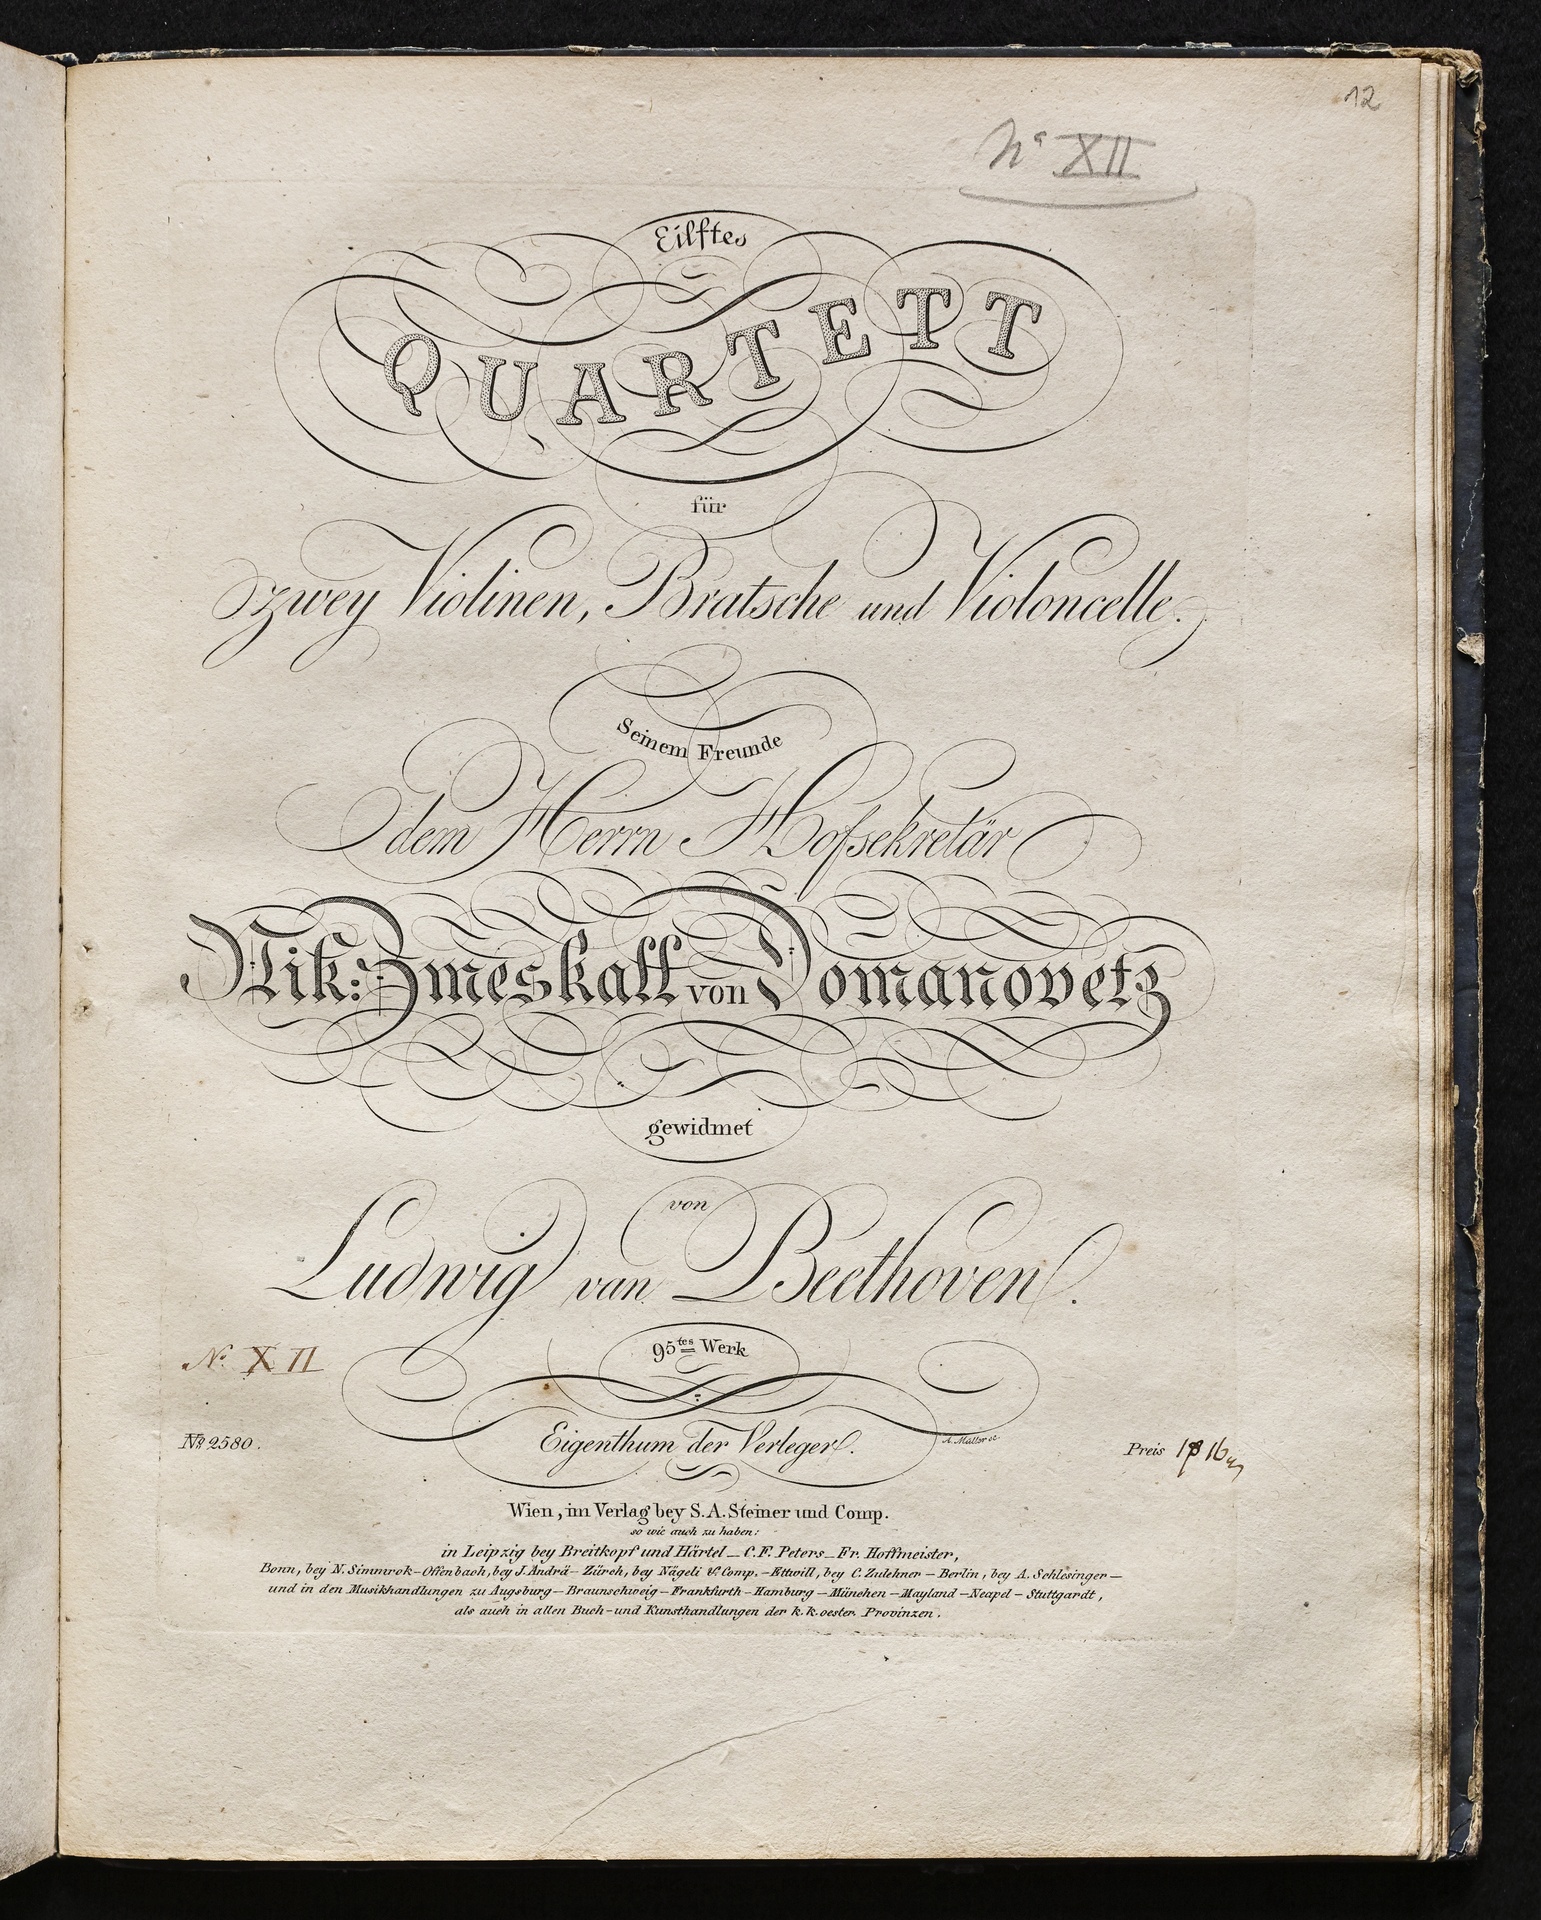 12
No XII
Eilftes
QUARTETT
für
zwey Violinen, Bratsche und Violoncelle.
Seinem Freunde
dem Herrn Hofsekretär
Nik: Zmeskall von Domanovetz
gewidmet
von
Ludwig van Beethoven.
95tes Werk
No XII
No 2580.
Eigenthum der Verleger.
A. Müller sc
Preis
Wien, im Verlag bey S. A. Steiner und Comp.
so wie auch zu haben:
in Leipzig bey Breitkopf und Härtel _ C. F. Peters _ Fr. Hoffmeister,
Bonn, bey N. Simmrok – Offenbach, bey J. Andrä – Zürch, bey Nägeli & Comp. – Ettwill, bey C. Zulehner – Berlin, bey A. Schlesinger –
und in den Musikhandlungen zu Augsburg – Braunschweig – Frankfurth – Hamburg – München – Mayland – Neapel – Stuttgardt,
als auch in allen Buch- und Kunsthandlungen der k. k. oester. Provinzen.